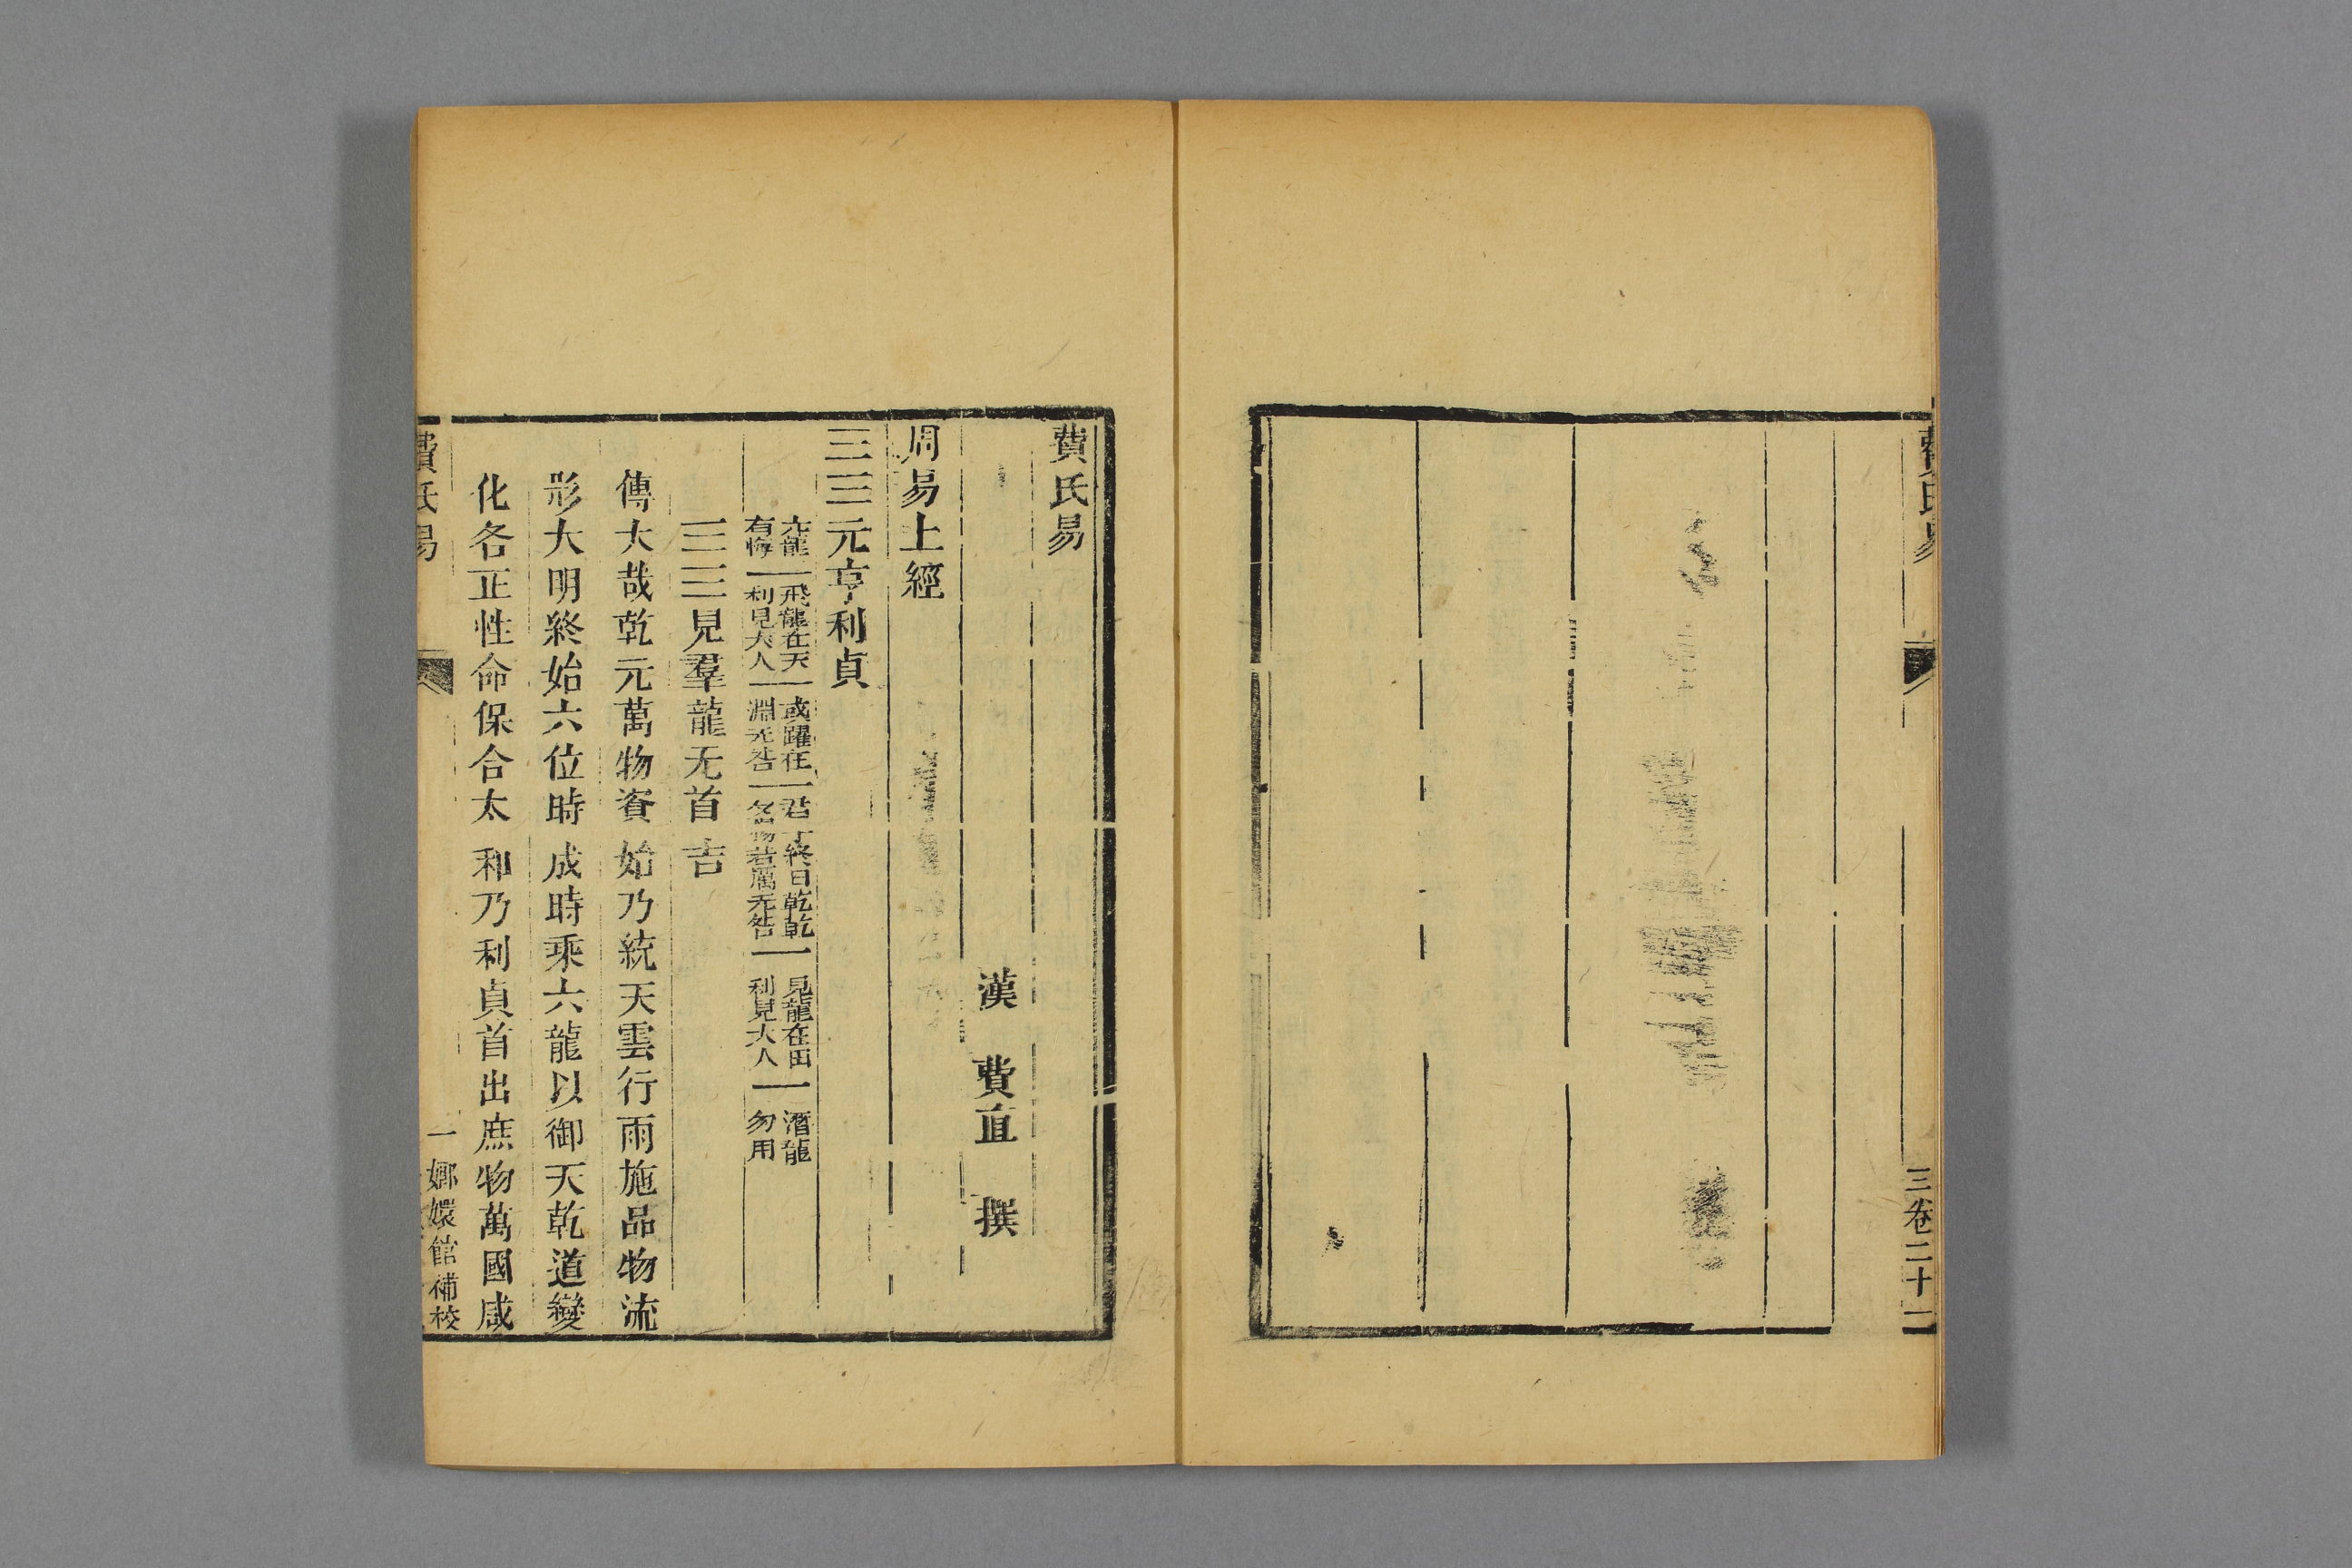 費氏易
三卷二十一
費氏易
漢 費直 撰
周易上經
☰☰元亨利貞
亢龍有悔一飛龍在天利見大人一或躍在淵无咎一君子終日乾乾夕惕若厲无咎一見龍在田利見大人一潛龍勿用
☰☰見羣龍无首吉
傳大哉乾元萬物資始乃統天雲行雨施品物流
形大明終始六位時成時乘六龍以御天乾道變
化各正性命保合太和乃利貞首出庶物萬國咸
費氏易
一 嫏嬛館補校